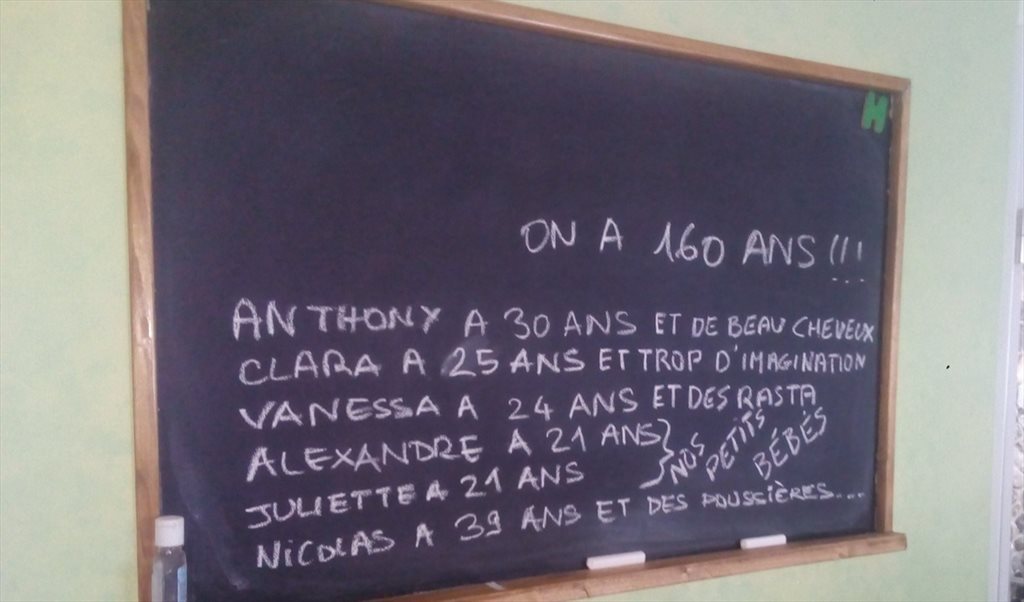 H
ON A 160 ANS !!!
ANTHONY A 30 ANS ET DE BEAU CHEVEUX
CLARA A 25 ANS ET TROP D'IMAGINATION
VANESSA A 24 ANS ET DES RASTA
ALEXANDRE A 21 ANS
JULIETTE A 21 ANS
NOS PETITS BÉBÉS
NICOLAS A 39 ANS ET DES POUSSIÈRES....